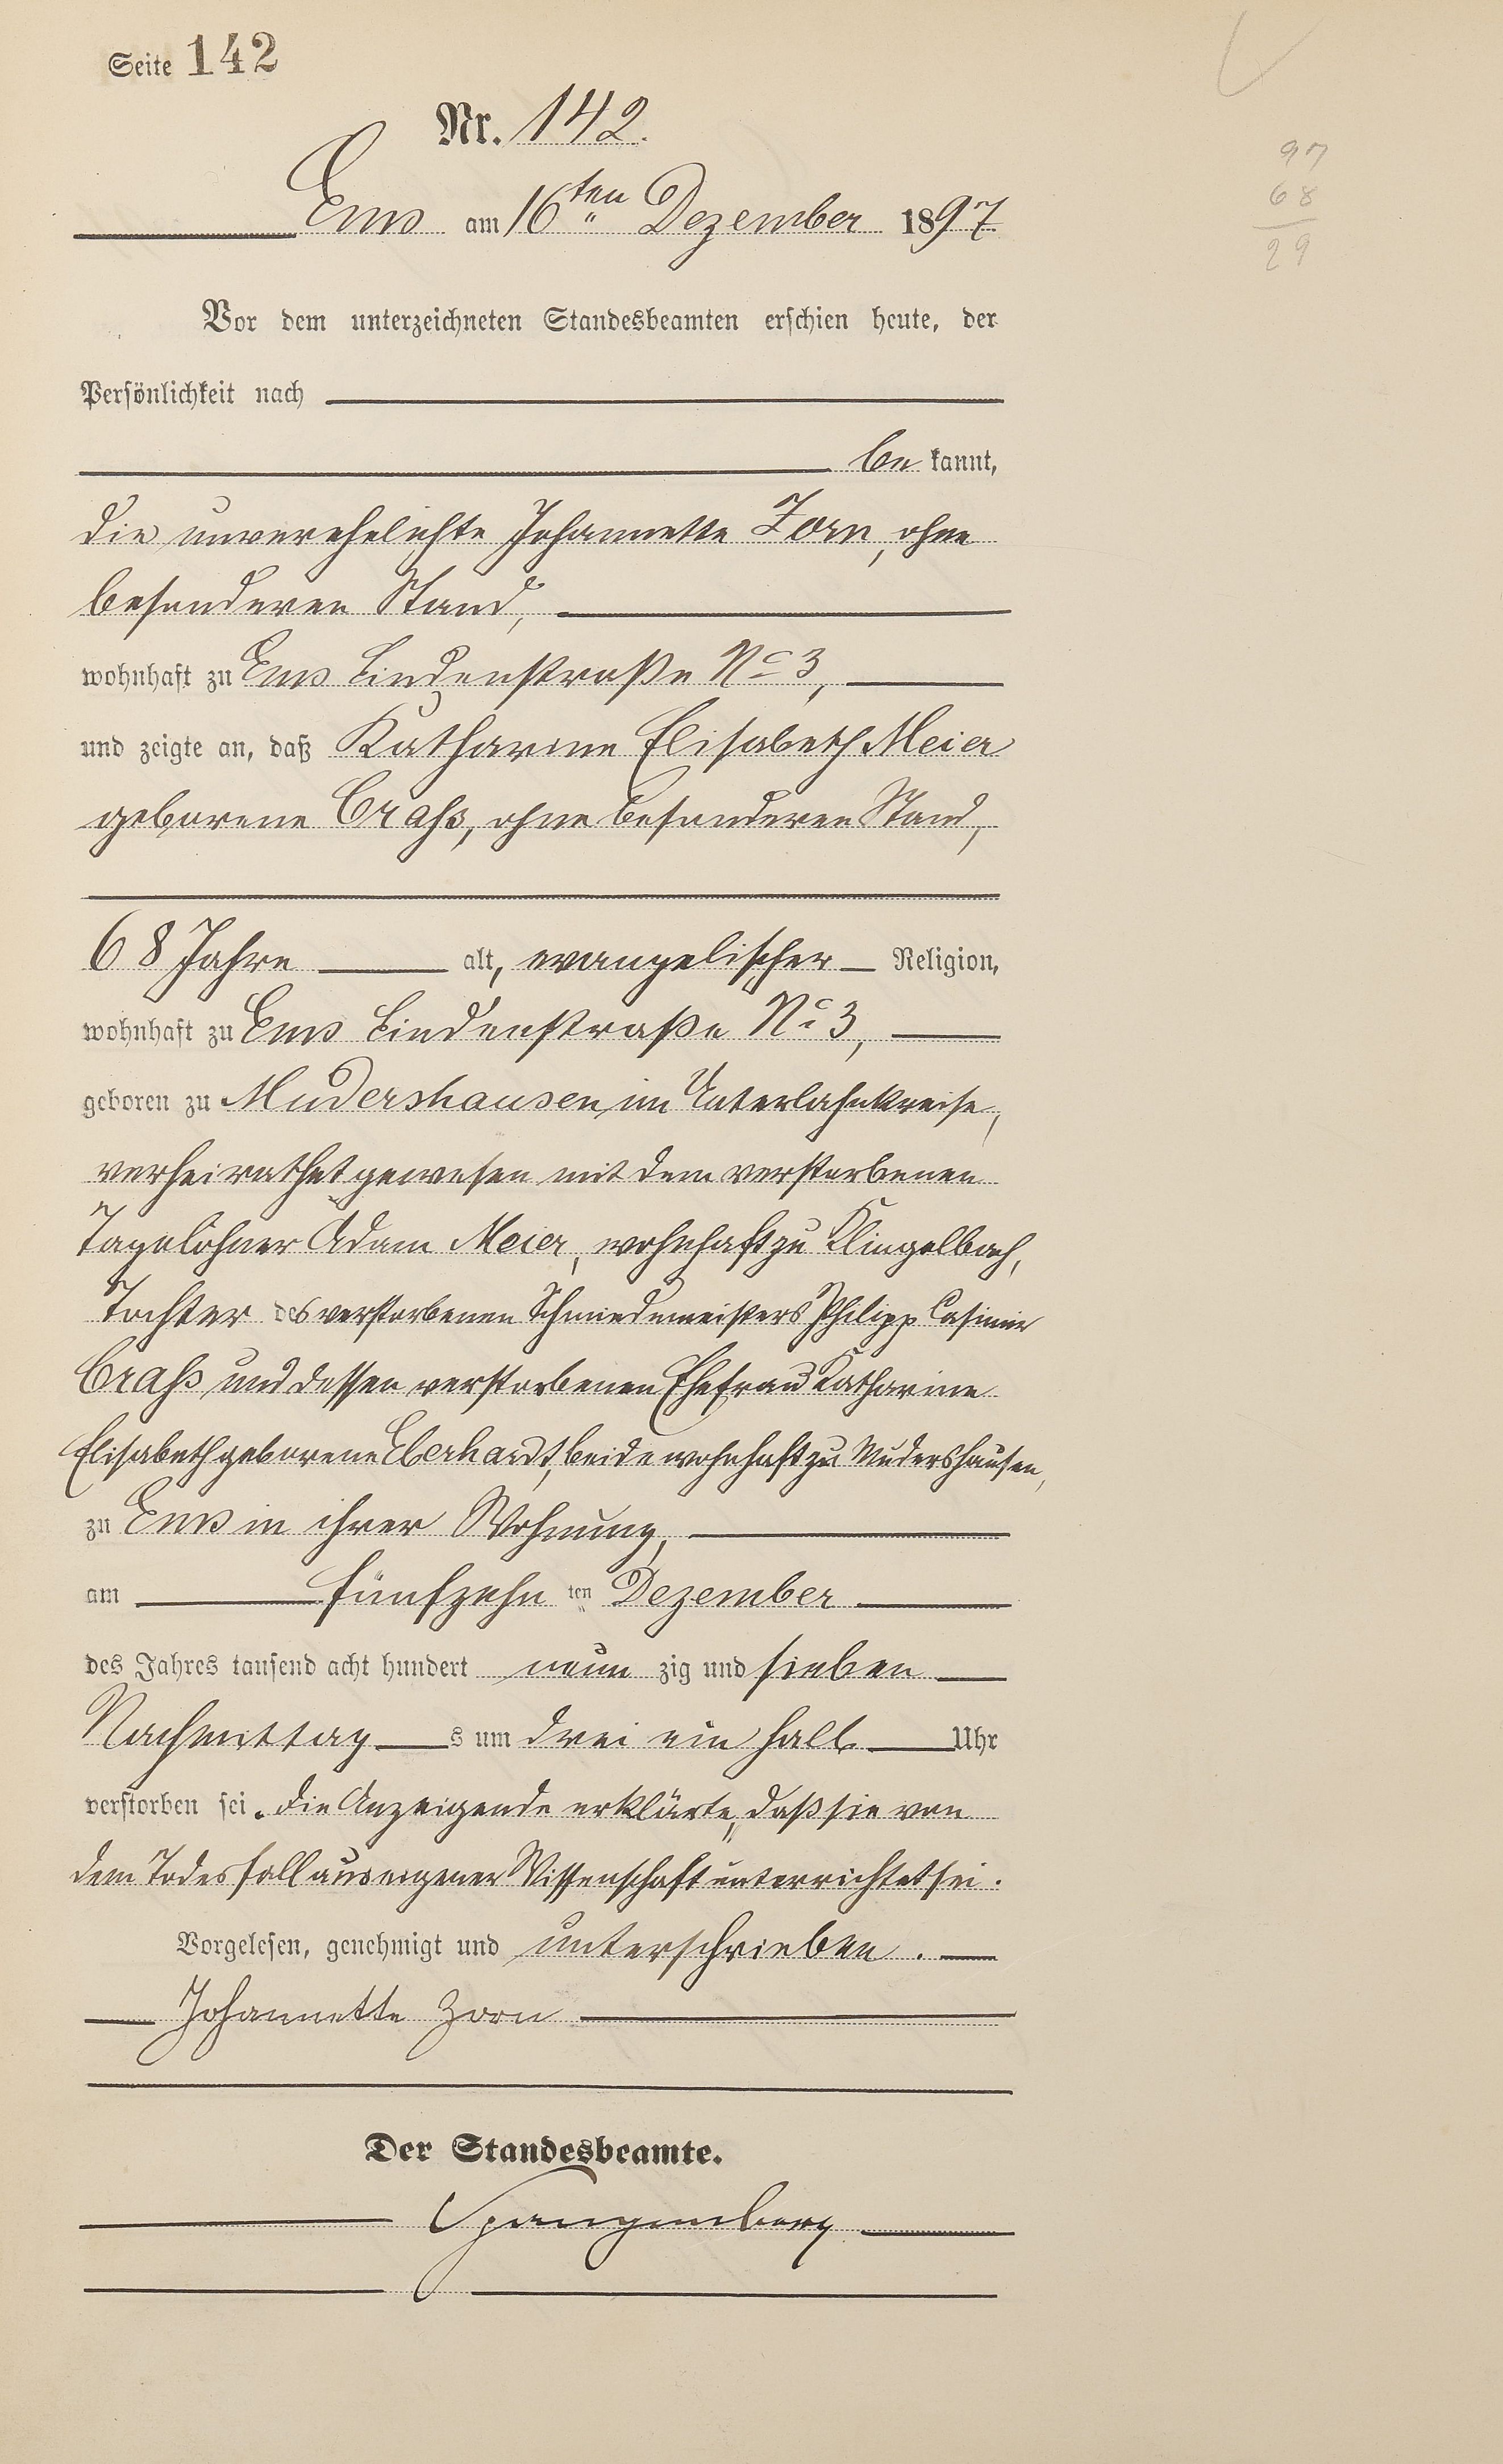 Seite 142
Nr. 142.
Ems am 16ten Dezember 1897
97
68
29
Vor dem unterzeichneten Standesbeamten erschien heute, der
Persönlichkeit nach
be kannt,
die unverehelichte Johannette Zorn, ohne
besonderen Stand,
wohnhaft zu Ems Lindenstraße No 3,
und zeigte an, daß Katharine Elisabeth Meier
geborene Craß, ohne besonderen Stand,
68 Jahre alt, evangelischer Religion,
wohnhaft zu Ems Lindenstraße No 3,
geboren zu Mudershausen im Unterlahnkreise,
verheirathet gewesen mit dem verstorbenen
Tagelöhner Adam Meier, wohnhaft zu Klingelbach,
Tochter des verstorbenen Schmiedemeisters Philipp Casimir
Craß und dessen verstorbenen Ehefrau Katharine
Elisabeth geborene Eberhardt, beide wohnhaft zu Mudershausen,
zu Ems in ihrer Wohnung,
am fünfzehn ten Dezember
des Jahres tausend acht hundert neun zig und sieben
Nachmittag s um drei ein halb Uhr
verstorben sei. Die Anzeigende erklärte, daß sie von
dem Todesfall aus eigener Wissenschaft unterrichtet sei.
Vorgelesen, genehmigt und unterschrieben.
Johannette Zorn
Der Standesbeamte.
Spangenberg